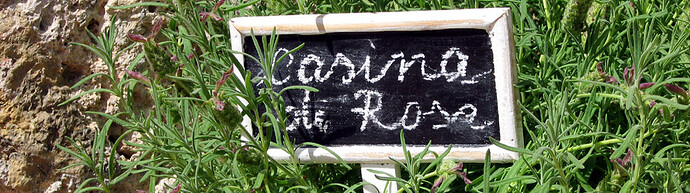 Casina
de Rose